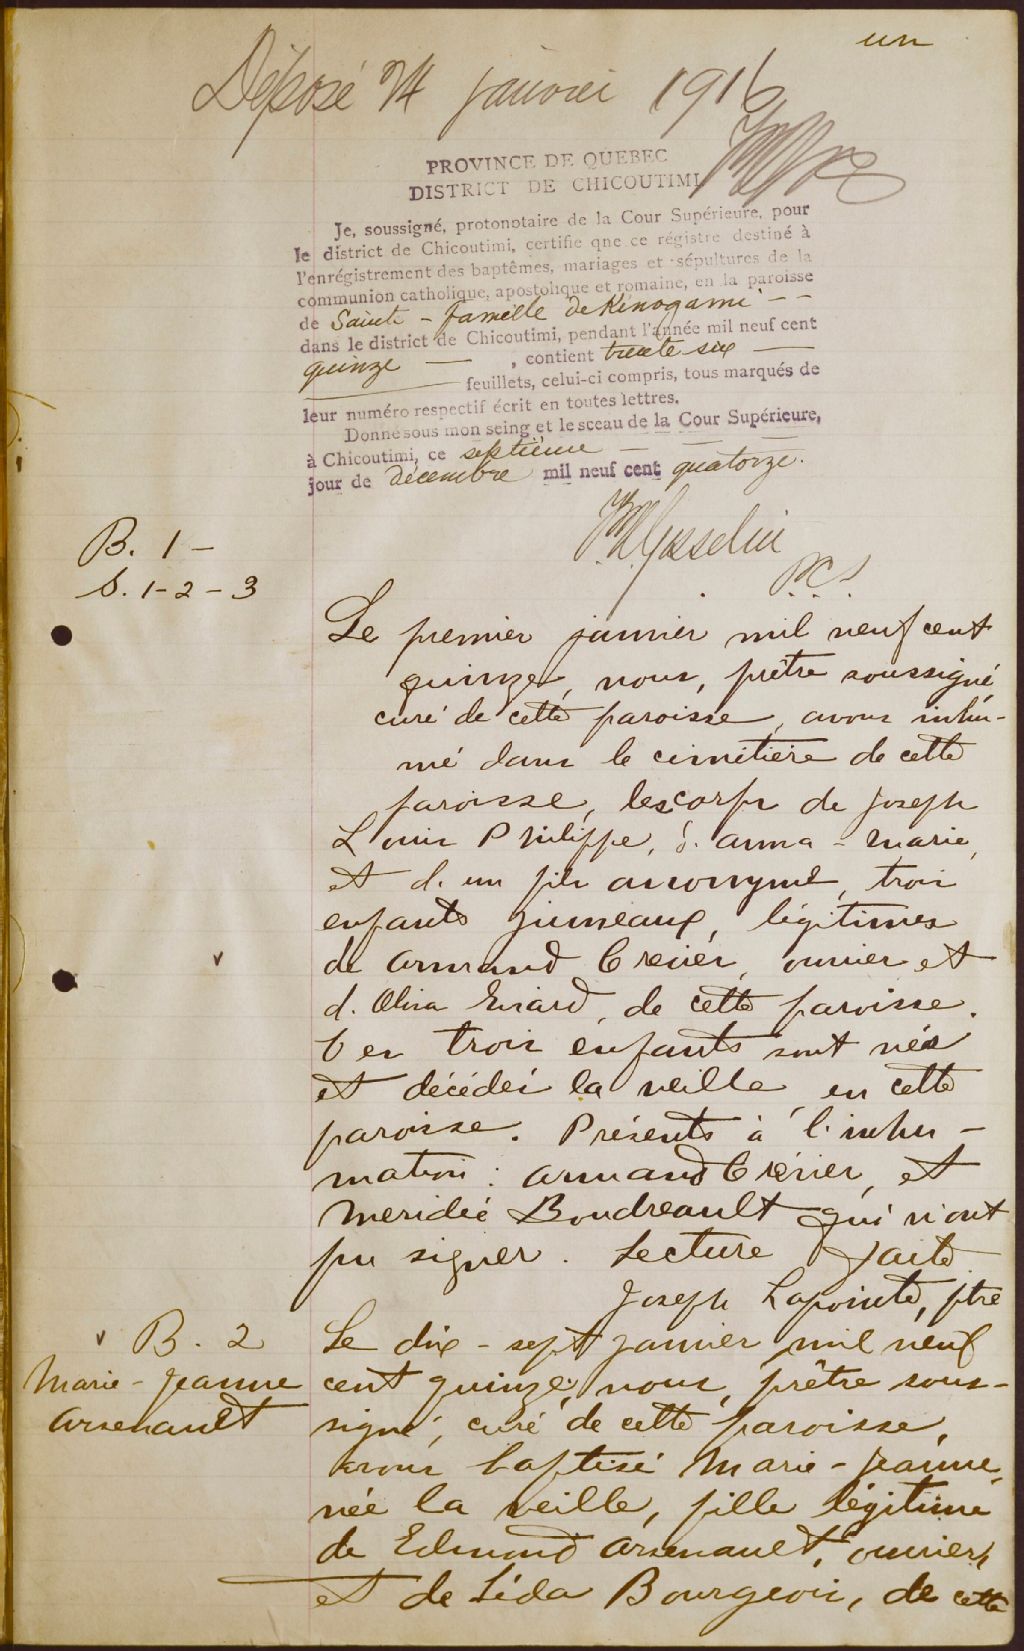 un
Déposé 24 janvier 1916
PROVINCE DE QUEBEC
DISTRICT DE CHICOUTIMI
Je, soussigné, protonotaire de la Cour Supérieure, pour
le district de Chicoutimi, certifie qne ce régistre destiné à
l'enrégistrement des baptêmes, mariages et sépultures de la
communion catholique, apostolique et romaine, en la paroisse
de Sainte - famille de Kénogami - -
dans le district de Chicoutimi, pendant l'année mil neuf cent
quinze — , contient trente six —
— feuillets, celui-ci compris, tous marqués de
leur numéro respectif écrit en toutes lettres.
Donné sous mon seing et le sceau de la Cour Supérieure,
à Chicoutimi, ce septième —
jour de décembre mil neuf cent quatorze.
Gosselin
P.C.S.
B. 1 -
S. 1 - 2 - 3
Le premier janvier mil neuf cent
quinze, nous, prêtre soussigné,
curé de cette paroisse, avons inhu-
mé dans le cimitière de cette
paroisse, les corps de Joseph
Louis Philippe, d. anna - marie,
et d. un fils anonyme, trois
enfants jumeaux, légitimes
de Armand Crevier, ouvrier et
d. Olina Girard, de cette paroisse.
Ces trois enfants sont nés
et décédés la veille en cette
paroisse. Présents à l'inhu-
mation : Armand Crévier, et
Meridée Boudreault qui n'ont
pu signer. Lecture faite
Joseph Lapointe, ptre
v B. 2
Marie - Jeanne
Arsenault
Le dix - sept janvier mil neuf
cent quinze, nous, prêtre sous-
signé, curé de cette paroisse,
avons baptisé Marie - Jeanne,
née la veille, fille légitime
de Edmond Arsenault, ouvrier,
et de Léda Bourgeois, de cette